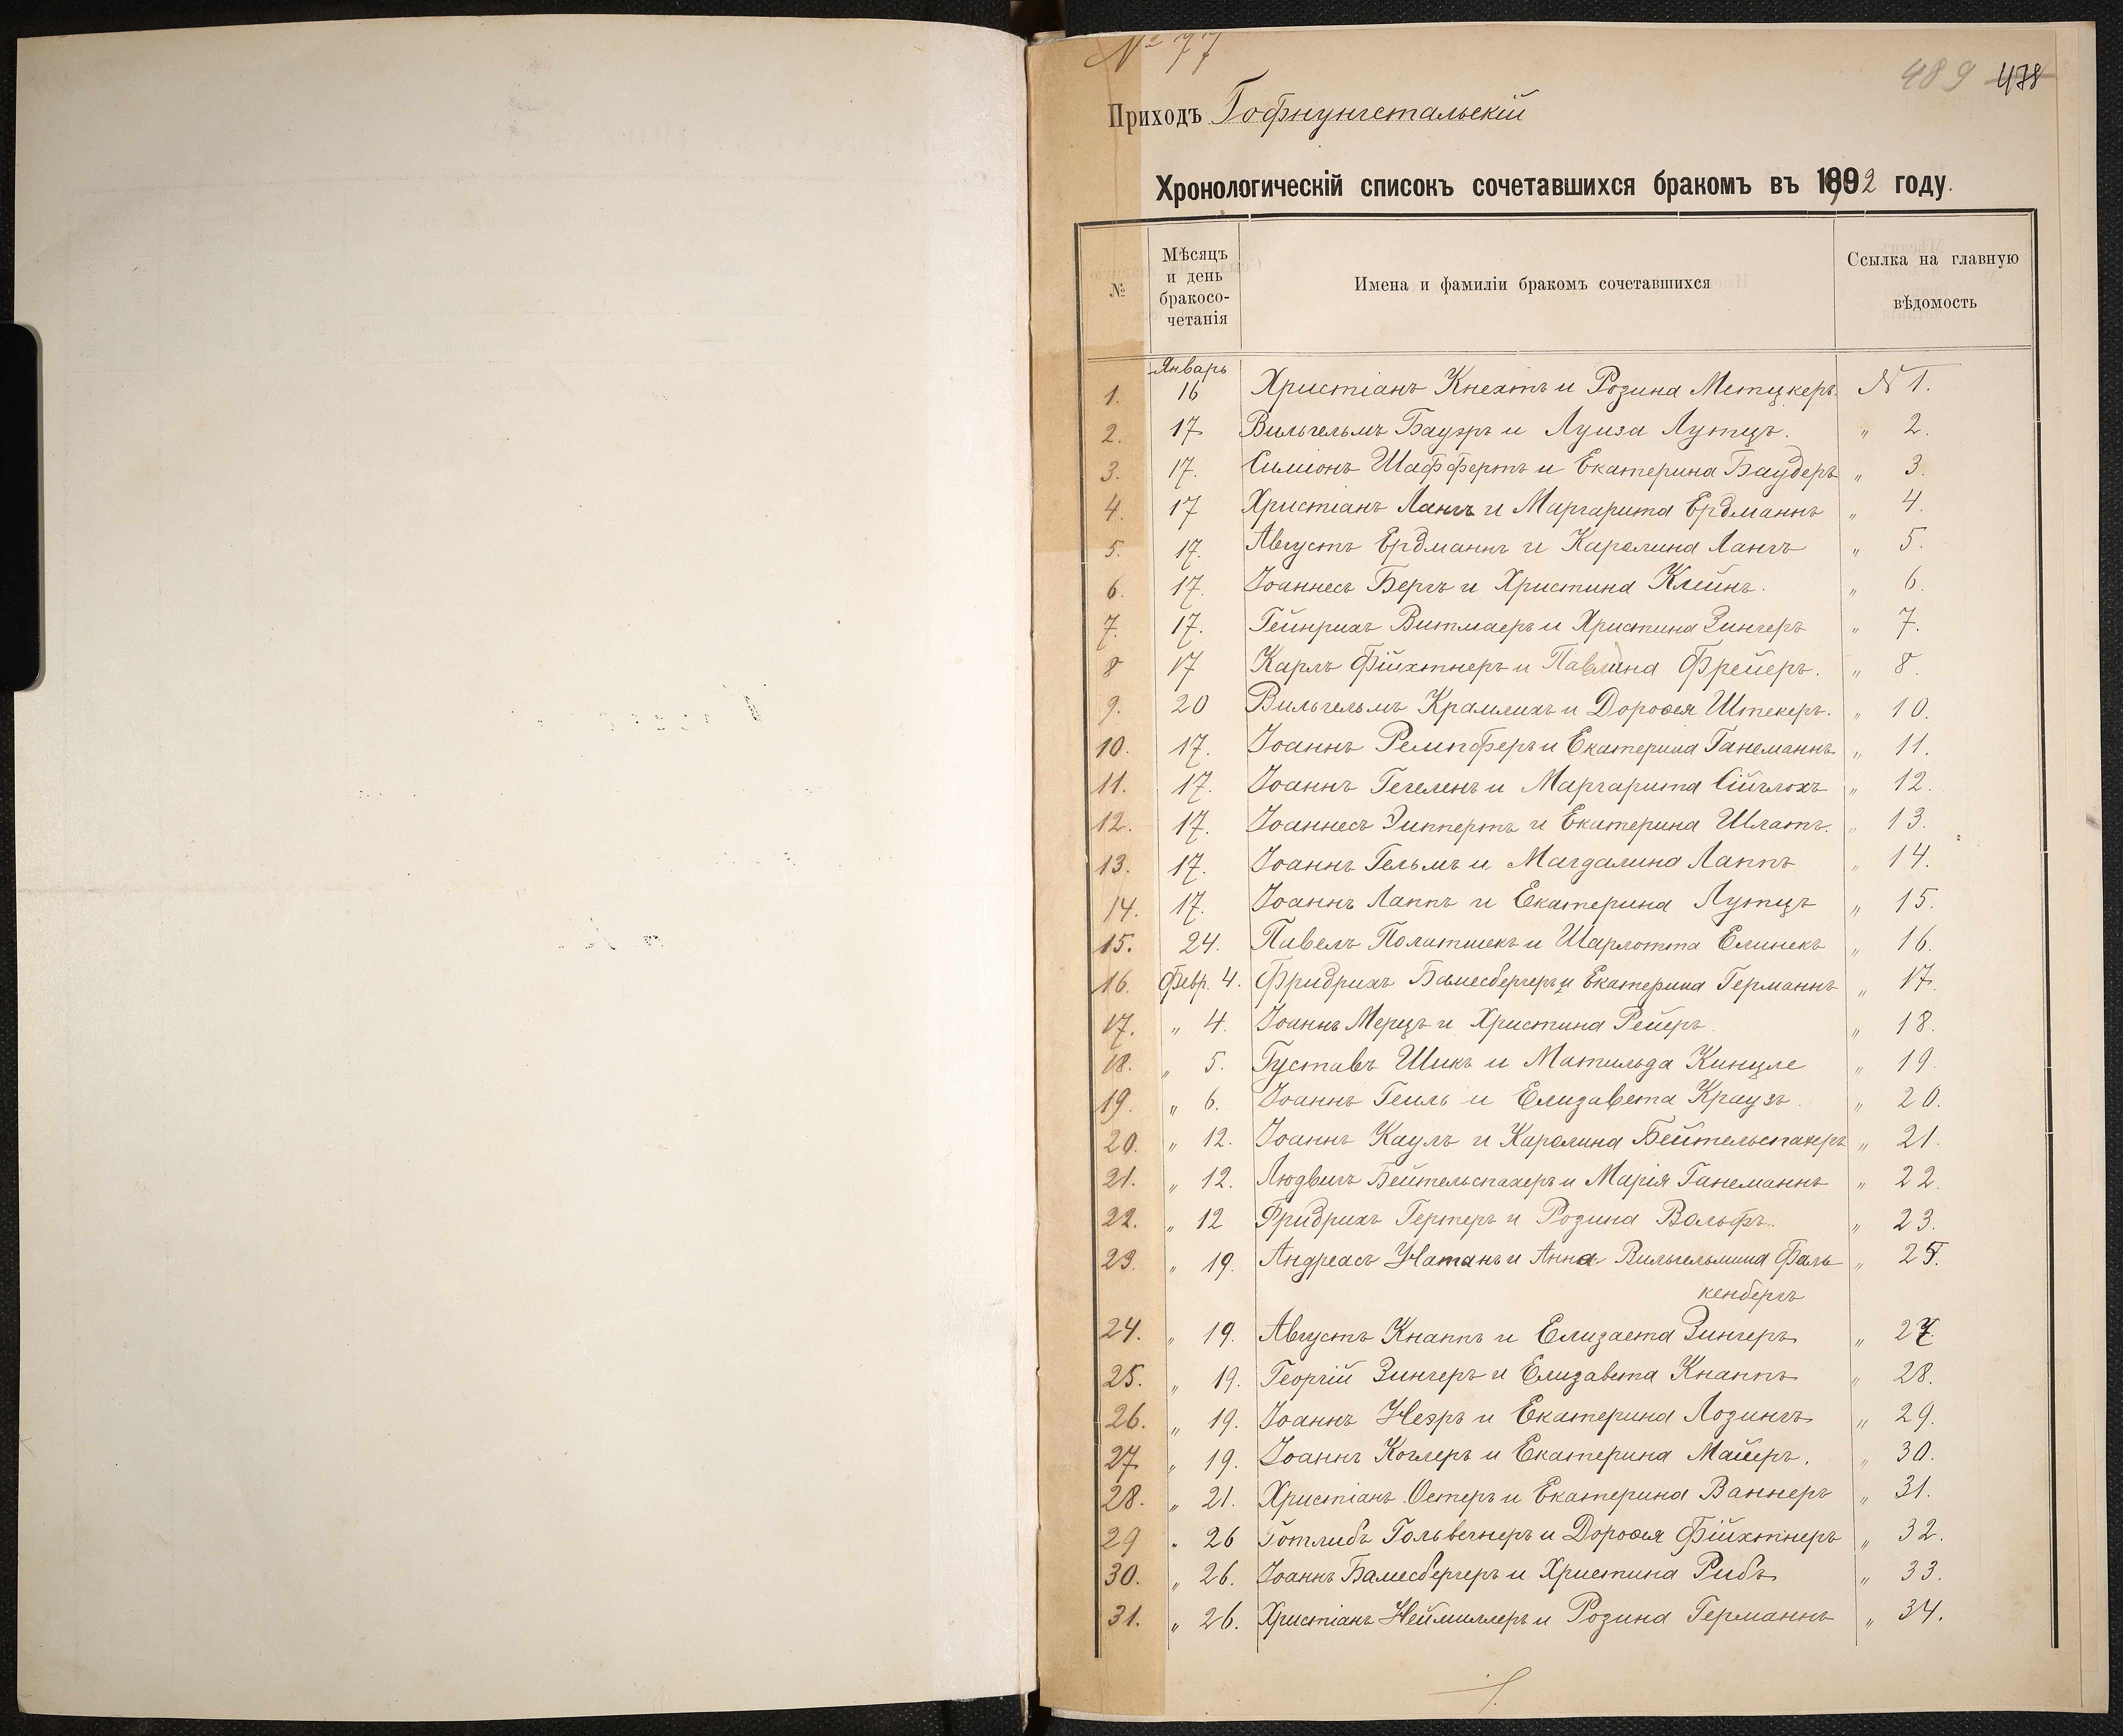 № 77
489 478
Приходъ Гофнунгстальскій
Хронологическій списокъ сочетавшихся бракомъ въ 1892 году.
№
Мѣсяцъ
и день
бракосо-
четанія
Имена и фамиліи бракомъ сочетавшихся
Ссылка на главную
вѣдомость
Январь
1. 16 Христіанъ Кнехтъ и Розина Метцкеръ. № 1.
2. 17 Вильгельмъ Бауэръ и Луиза Лутцъ. " 2.
3. 17. Симіонъ Шаффертъ и Екатерина Баудеръ " 3.
4. 17 Христіанъ Лангъ и Маргарита Ердманнъ " 4.
5. 17. Августъ Ердманнъ и Каролина Лангъ " 5.
6. 17. Іоаннесъ Бергъ и Христина Клейнъ. " 6.
7. 17. Гейнрихъ Витмаеръ и Христина Зингеръ " 7.
8 17 Карлъ Фійхтнеръ и Павлина Фрейеръ. " 8.
9. 20 Вильгельмъ Крамлихъ и Дороѳея Штекеръ. " 10.
10. 17. Іоаннъ Ремпферъ и Екатерина Ганеманнъ " 11.
11. 17. Іоаннъ Гегеленъ и Маргарита Сійглохъ " 12.
12. 17. Іоаннесъ Зиппертъ и Екатерина Шлатъ. " 13.
13. 17. Іоаннъ Гельмъ и Магдалина Лаппъ " 14.
14. 17. Іоаннъ Лаппъ и Екатерина Лутцъ " 15.
15. 24. Павелъ Полатшекъ и Шарлотта Елинекъ " 16.
16. Февр. 4. Фридрихъ Бамесбергеръ и Екатерина Германнъ " 17.
17. " 4. Іоаннъ Мерцъ и Христина Рейеръ " 18.
18. " 5. Густавъ Шикъ и Матильда Кинцле " 19.
19. " 6. Іоаннъ Гейль и Елизавета Краузъ. " 20.
20. " 12. Іоаннъ Каулъ и Каролина Бейтельспахеръ " 21.
21. " 12. Людвигъ Бейтельспахеръ и Марія Ганеманнъ " 22.
22. " 12 Фридрихъ Гертеръ и Розина Вольфъ. " 23.
23. " 19. Андреасъ Натанъ и Анна Вильгельмина Фаль " 25.
кенбергъ
24. " 19. Августъ Кнаппъ и Елизаета Зингеръ " 27.
25. " 19. Георгій Зингеръ и Елизавета Кнаппъ " 28.
26. " 19. Іоаннъ Неэръ и Екатерина Лозингъ " 29.
27. " 19. Іоаннъ Коглеръ и Екатерина Майеръ. " 30.
28. " 21. Христіанъ Остеръ и Екатерина Ваннеръ " 31.
29 " 26 Готлибъ Гольвегнеръ и Дороѳея Фійхтнеръ " 32.
30. " 26. Іоаннъ Бамесбергеръ и Христина Рибъ " 33.
31. " 26. Христіанъ Неймиллеръ и Розина Германнъ " 34.